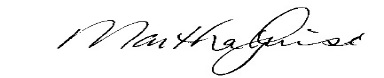 Martha Guise